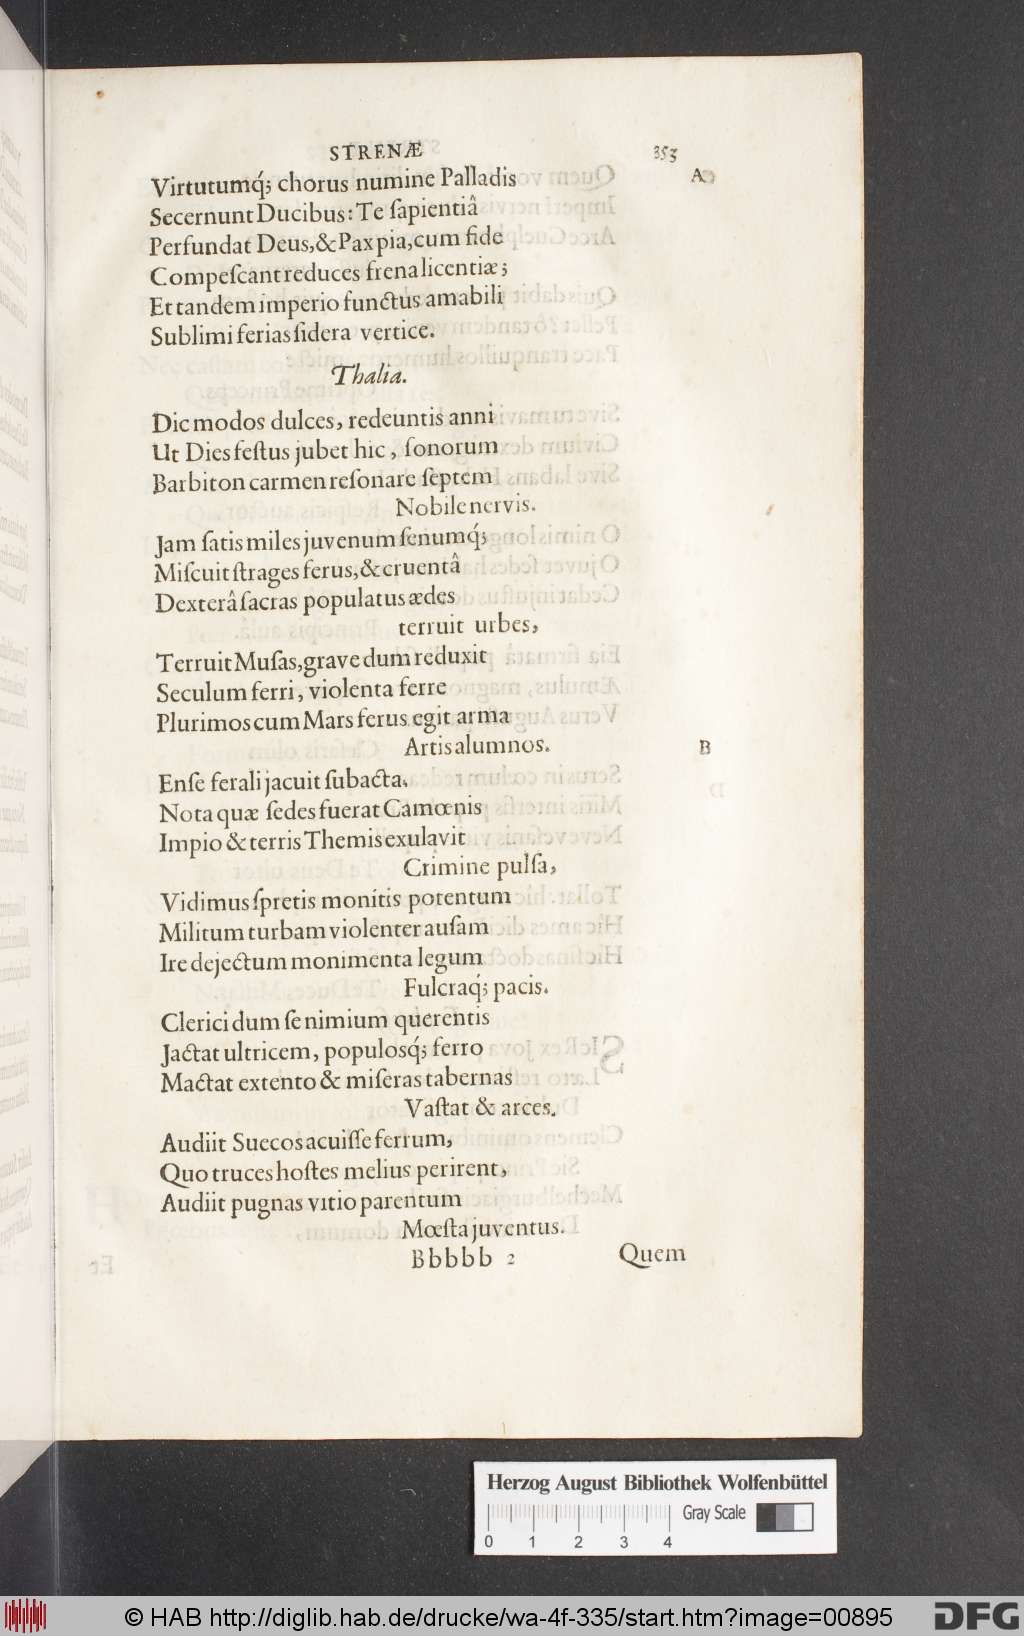 STRENÆ 353
Virtutumq́; chorus numine Palladis A
Secernunt Ducibus: Te ſapientiâ
Perfundat Deus, & Pax pia, cum fide
Compeſcant reduces frena licentiæ;
Et tandem imperio functus amabili
Sublimi ferias ſidera vertice.
Thalia.
Dic modos dulces, redeuntis anni
Ut Dies feſtus jubet hic, ſonorum
Barbiton carmen reſonare ſeptem
Nobile nervis.
Jam ſatis miles juvenum ſenumq́;
Miſcuit ſtrages ferus, & cruentâ
Dexterâ ſacras populatus ædes
terruit urbes,
Terruit Muſas, grave dum reduxit
Seculum ferri, violenta ferre
Plurimos cum Mars ferus egit arma
Artis alumnos. B
Enſe ferali jacuit ſubacta,
Nota quæ ſedes fuerat Camœnis
Impio & terris Themis exulavit
Crimine pulſa,
Vidimus ſpretis monitis potentum
Militum turbam violenter auſam
Ire dejectum monimenta legum
Fulcraq́; pacis.
Clerici dum ſe nimium querentis
Jactat ultricem, populosq́; ferro
Mactat extento & miſeras tabernas
Vaſtat & arces.
Audiit Suecos acuiſſe ferrum,
Quo truces hoſtes melius perirent,
Audiit pugnas vitio parentum
Mœſta juventus.
Bbbbb 2 Quem
Herzog August Bibliothek Wolfenbüttel
Gray Scale
0 1 2 3 4
© HAB http://diglib.hab.de/drucke/wa-4f-335/start.htm?image=00895
DFG